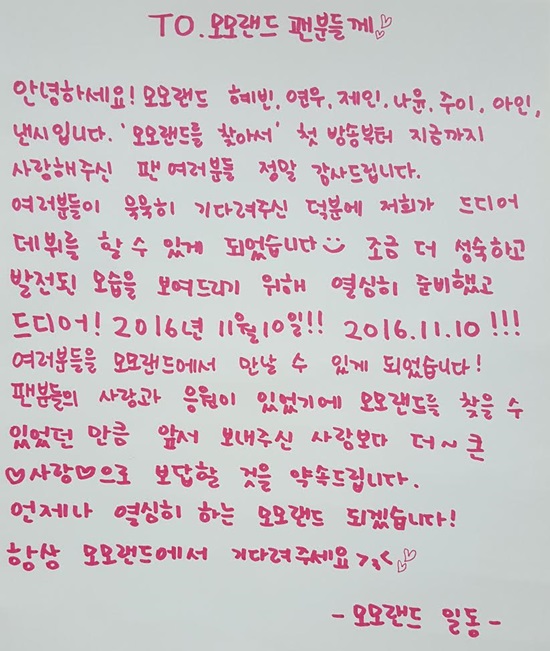 TO. 모모랜드 팬분들께♡
안녕하세요! 모모랜드 혜빈, 연우, 제인, 나윤, 주이, 아인,
낸시입니다. '모모랜드를 찾아서' 첫 방송부터 지금까지
사랑해주신 팬 여러분들 정말 감사드립니다.
여러분들이 묵묵히 기다려주신 덕분에 저희가 드디어
데뷔를 할 수 있게 되었습니다☺ 조금 더 성숙하고
발전된 모습을 보여드리기 위해 열심히 준비했고
드디어! 2016년 11월10일!! 2016.11.10 !!!
여러분들을 모모랜드에서 만날 수 있게 되었습니다!
팬분들의 사랑과 응원이 있었기에 모모랜드를 찾을 수
있었던 만큼 앞서 보내주신 사랑보다 더~ 큰
♡사랑♡으로 보답할 것을 약속드립니다.
언제나 열심히 하는 모모랜드 되겠습니다!
항상 모모랜드에서 기다려주세요>3<♡
- 모모랜드 일동 -